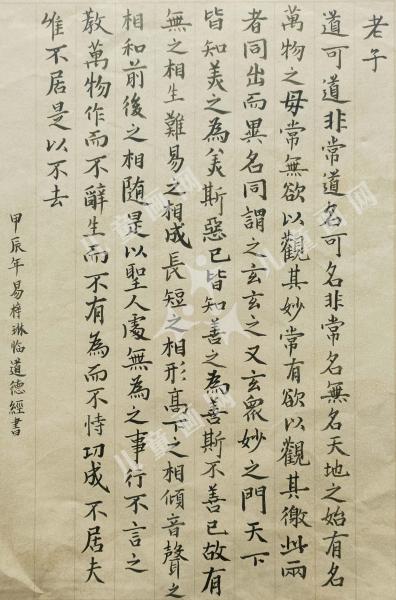 老子
道可道非常道名可名非常名無名天地之始有名
萬物之母常無欲以觀其妙常有欲以觀其徼此兩
者同出而異名同謂之玄玄之又玄眾妙之門天下
皆知美之為美斯惡已皆知善之為善斯不善已故有
無之相生難易之相成長短之相形高下之相傾音聲之
相和前後之相随是以聖人處無為之事行不言之
教萬物作而不辭生而不有為而不恃功成不居夫
唯不居是以不去
甲辰年易梓琳临道德經書
儿童画网